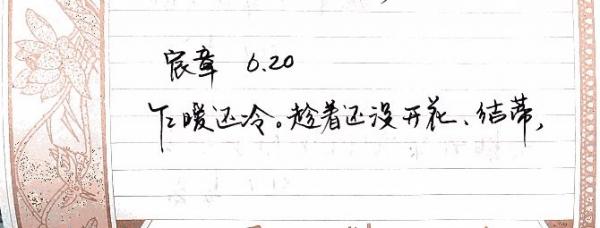 宸章 6.20
乍暖还冷。趁着还没开花、结蒂，